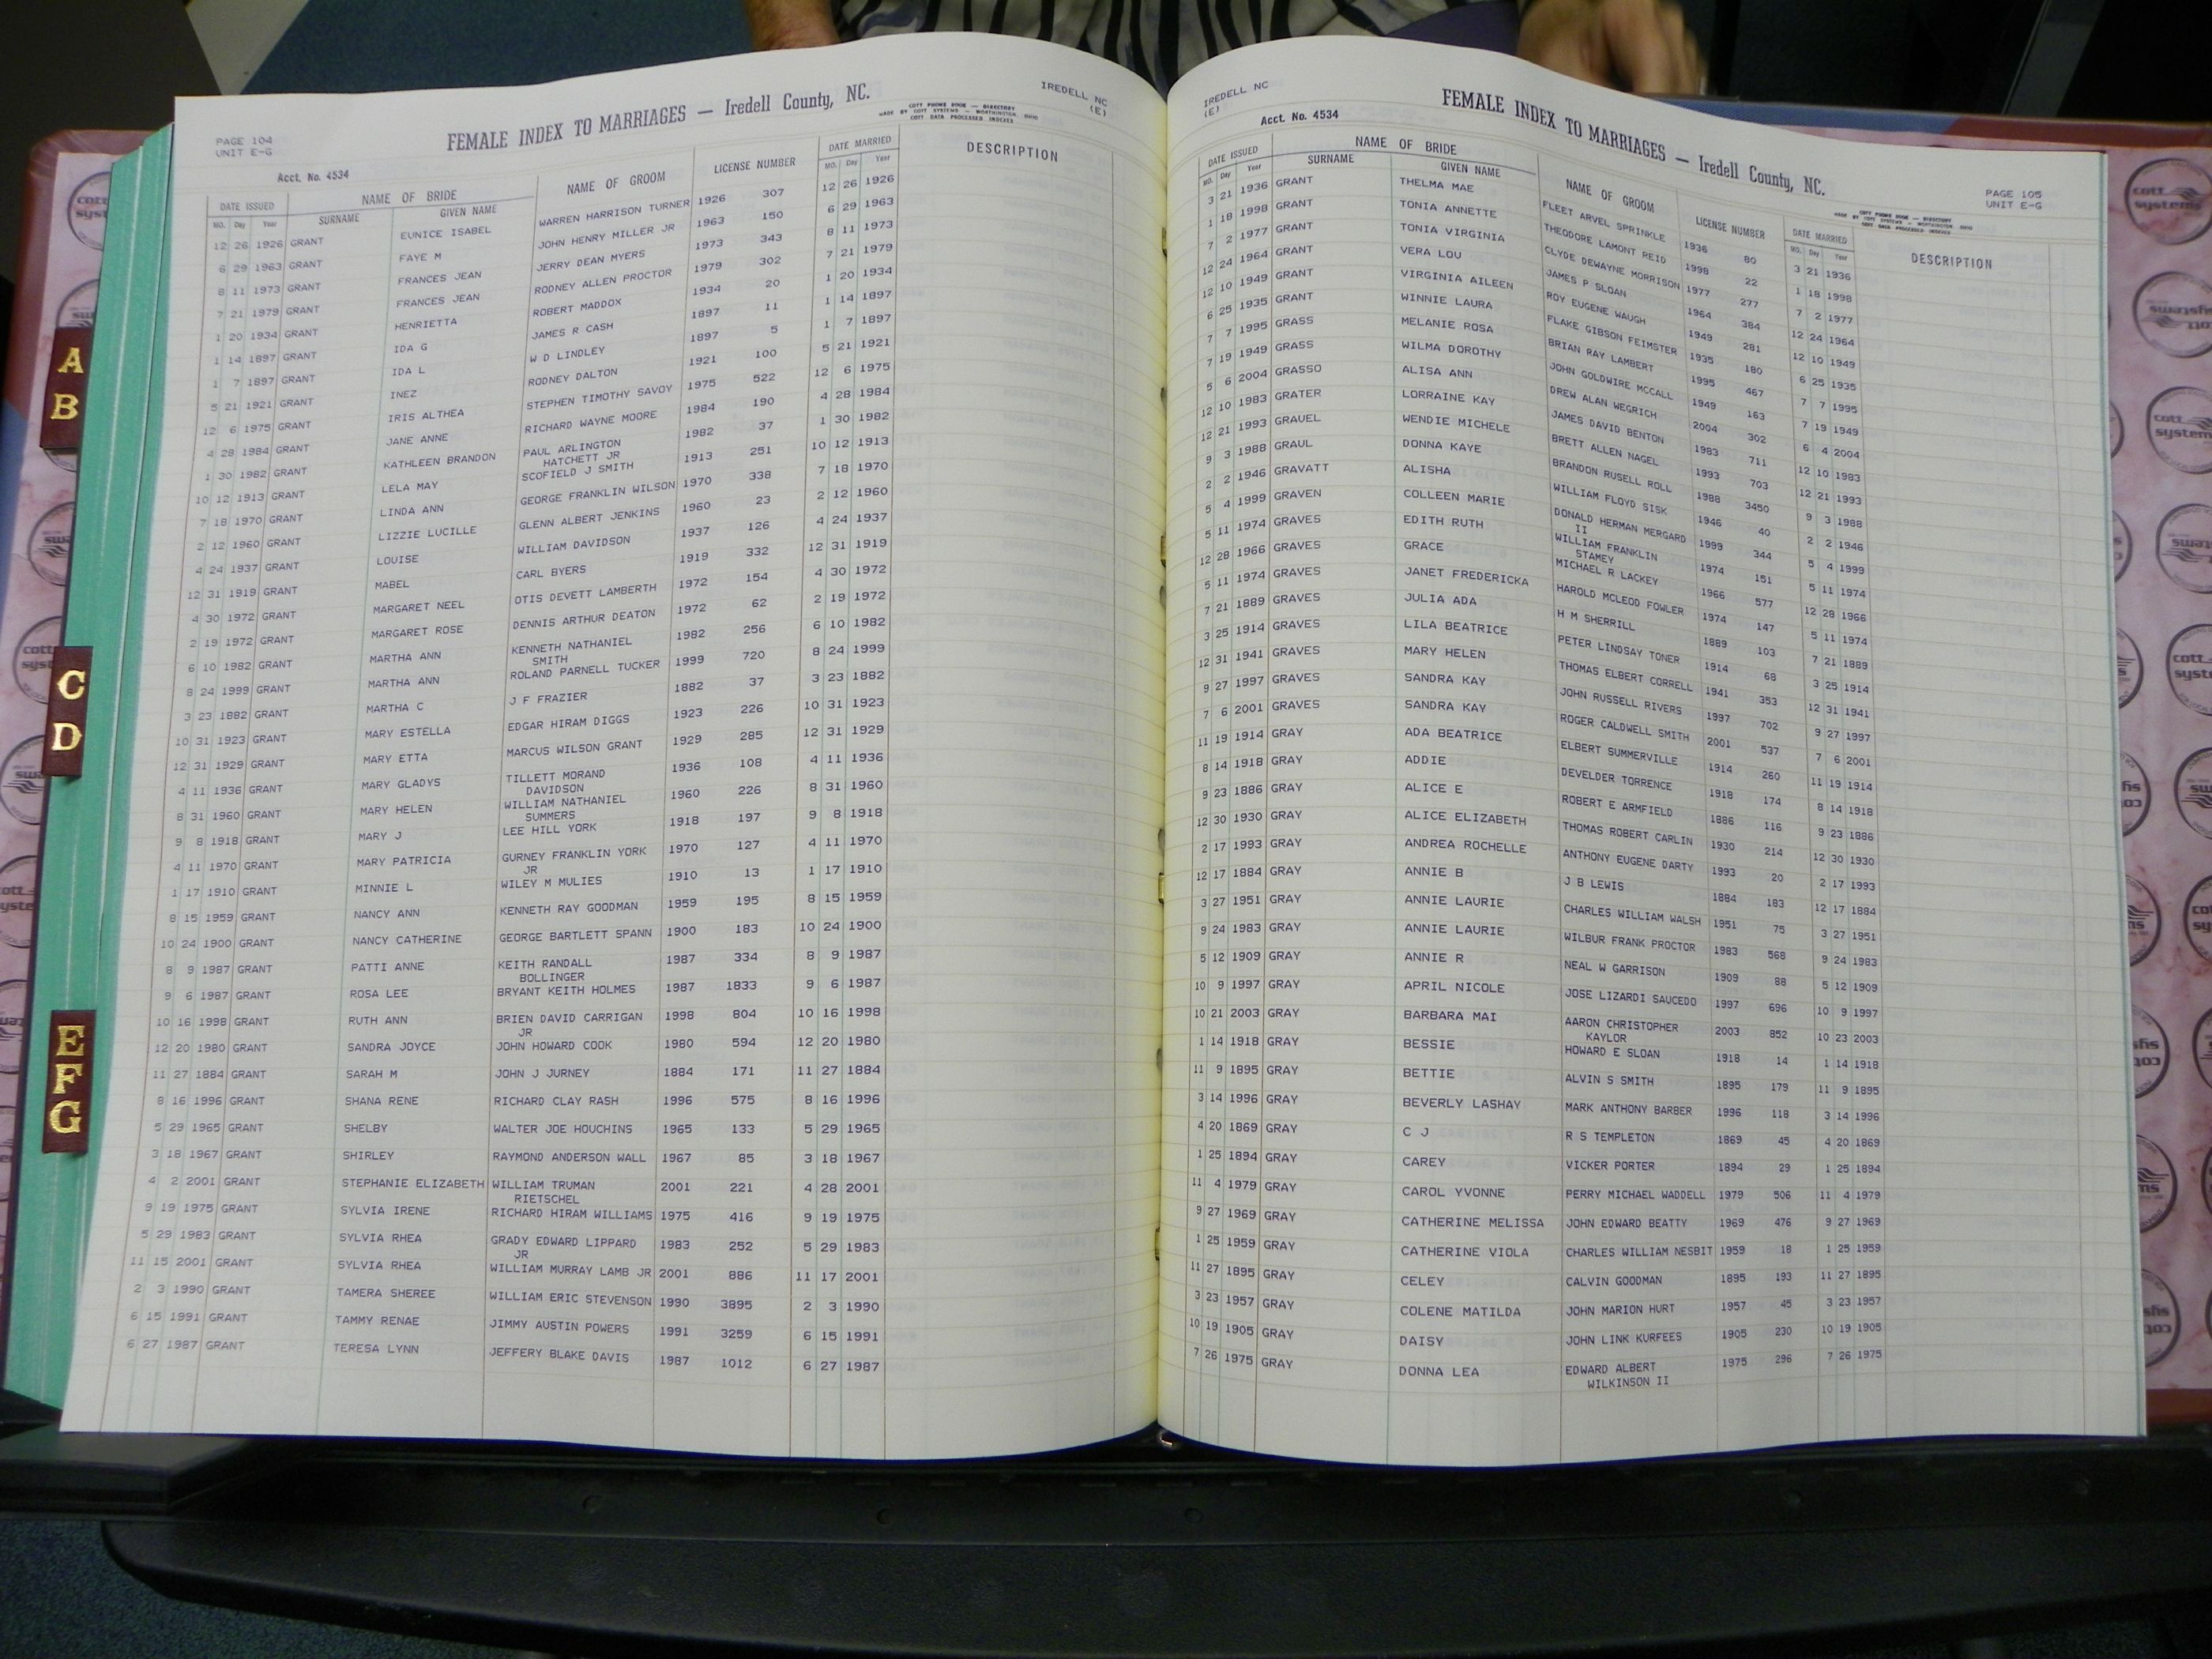 IREDELL NC
(E)
COTT PHONE BOOK — DIRECTORY
MADE BY COTT SYSTEMS — WORTHINGTON, OHIO
COTT DATA PROCESSED INDEXES
FEMALE INDEX TO MARRIAGES — Iredell County, NC.
PAGE 104
UNIT E-G
Acct. No. 4534
DATE ISSUED NAME OF BRIDE NAME OF GROOM LICENSE NUMBER DATE MARRIED DESCRIPTION
MO. Day Year SURNAME GIVEN NAME MO. Day Year
12 26 1926 GRANT EUNICE ISABEL WARREN HARRISON TURNER 1926 307 12 26 1926
6 29 1963 GRANT FAYE M JOHN HENRY MILLER JR 1963 150 6 29 1963
8 11 1973 GRANT FRANCES JEAN JERRY DEAN MYERS 1973 343 8 11 1973
7 21 1979 GRANT FRANCES JEAN RODNEY ALLEN PROCTOR 1979 302 7 21 1979
1 20 1934 GRANT HENRIETTA ROBERT MADDOX 1934 20 1 20 1934
1 14 1897 GRANT IDA G JAMES R CASH 1897 11 1 14 1897
1 7 1897 GRANT IDA L W D LINDLEY 1897 5 1 7 1897
5 21 1921 GRANT INEZ RODNEY DALTON 1921 100 5 21 1921
12 6 1975 GRANT IRIS ALTHEA STEPHEN TIMOTHY SAVOY 1975 522 12 6 1975
4 28 1984 GRANT JANE ANNE RICHARD WAYNE MOORE 1984 190 4 28 1984
1 30 1982 GRANT KATHLEEN BRANDON PAUL ARLINGTON 1982 37 1 30 1982
HATCHETT JR
10 12 1913 GRANT LELA MAY SCOFIELD J SMITH 1913 251 10 12 1913
7 18 1970 GRANT LINDA ANN GEORGE FRANKLIN WILSON 1970 338 7 18 1970
2 12 1960 GRANT LIZZIE LUCILLE GLENN ALBERT JENKINS 1960 23 2 12 1960
4 24 1937 GRANT LOUISE WILLIAM DAVIDSON 1937 126 4 24 1937
12 31 1919 GRANT MABEL CARL BYERS 1919 332 12 31 1919
4 30 1972 GRANT MARGARET NEEL OTIS DEVETT LAMBERTH 1972 154 4 30 1972
2 19 1972 GRANT MARGARET ROSE DENNIS ARTHUR DEATON 1972 62 2 19 1972
6 10 1982 GRANT MARTHA ANN KENNETH NATHANIEL 1982 256 6 10 1982
SMITH
8 24 1999 GRANT MARTHA ANN ROLAND PARNELL TUCKER 1999 720 8 24 1999
3 23 1882 GRANT MARTHA C J F FRAZIER 1882 37 3 23 1882
10 31 1923 GRANT MARY ESTELLA EDGAR HIRAM DIGGS 1923 226 10 31 1923
12 31 1929 GRANT MARY ETTA MARCUS WILSON GRANT 1929 285 12 31 1929
4 11 1936 GRANT MARY GLADYS TILLETT MORAND 1936 108 4 11 1936
DAVIDSON
8 31 1960 GRANT MARY HELEN WILLIAM NATHANIEL 1960 226 8 31 1960
SUMMERS
9 8 1918 GRANT MARY J LEE HILL YORK 1918 197 9 8 1918
4 11 1970 GRANT MARY PATRICIA GURNEY FRANKLIN YORK 1970 127 4 11 1970
JR
1 17 1910 GRANT MINNIE L WILEY M MULIES 1910 13 1 17 1910
8 15 1959 GRANT NANCY ANN KENNETH RAY GOODMAN 1959 195 8 15 1959
10 24 1900 GRANT NANCY CATHERINE GEORGE BARTLETT SPANN 1900 183 10 24 1900
8 9 1987 GRANT PATTI ANNE KEITH RANDALL 1987 334 8 9 1987
BOLLINGER
9 6 1987 GRANT ROSA LEE BRYANT KEITH HOLMES 1987 1833 9 6 1987
10 16 1998 GRANT RUTH ANN BRIEN DAVID CARRIGAN 1998 804 10 16 1998
JR
12 20 1980 GRANT SANDRA JOYCE JOHN HOWARD COOK 1980 594 12 20 1980
11 27 1884 GRANT SARAH M JOHN J JURNEY 1884 171 11 27 1884
8 16 1996 GRANT SHANA RENE RICHARD CLAY RASH 1996 575 8 16 1996
5 29 1965 GRANT SHELBY WALTER JOE HOUCHINS 1965 133 5 29 1965
3 18 1967 GRANT SHIRLEY RAYMOND ANDERSON WALL 1967 85 3 18 1967
4 2 2001 GRANT STEPHANIE ELIZABETH WILLIAM TRUMAN 2001 221 4 28 2001
RIETSCHEL
9 19 1975 GRANT SYLVIA IRENE RICHARD HIRAM WILLIAMS 1975 416 9 19 1975
5 29 1983 GRANT SYLVIA RHEA GRADY EDWARD LIPPARD 1983 252 5 29 1983
JR
11 15 2001 GRANT SYLVIA RHEA WILLIAM MURRAY LAMB JR 2001 886 11 17 2001
2 3 1990 GRANT TAMERA SHEREE WILLIAM ERIC STEVENSON 1990 3895 2 3 1990
6 15 1991 GRANT TAMMY RENAE JIMMY AUSTIN POWERS 1991 3259 6 15 1991
6 27 1987 GRANT TERESA LYNN JEFFERY BLAKE DAVIS 1987 1012 6 27 1987
IREDELL NC
(E)
Acct. No. 4534
FEMALE INDEX TO MARRIAGES — Iredell County, NC.
PAGE 105
UNIT E-G
COTT PHONE BOOK — DIRECTORY
MADE BY COTT SYSTEMS — WORTHINGTON, OHIO
COTT DATA PROCESSED INDEXES
DATE ISSUED NAME OF BRIDE NAME OF GROOM LICENSE NUMBER DATE MARRIED DESCRIPTION
MO. Day Year SURNAME GIVEN NAME MO. Day Year
3 21 1936 GRANT THELMA MAE FLEET ARVEL SPRINKLE 1936 80 3 21 1936
1 18 1998 GRANT TONIA ANNETTE THEODORE LAMONT REID 1998 22 1 18 1998
7 2 1977 GRANT TONIA VIRGINIA CLYDE DEWAYNE MORRISON 1977 277 7 2 1977
12 24 1964 GRANT VERA LOU JAMES P SLOAN 1964 384 12 24 1964
12 10 1949 GRANT VIRGINIA AILEEN ROY EUGENE WAUGH 1949 281 12 10 1949
6 25 1935 GRANT WINNIE LAURA FLAKE GIBSON FEIMSTER 1935 180 6 25 1935
7 7 1995 GRASS MELANIE ROSA BRIAN RAY LAMBERT 1995 467 7 7 1995
7 19 1949 GRASS WILMA DOROTHY JOHN GOLDWIRE MCCALL 1949 163 7 19 1949
5 6 2004 GRASSO ALISA ANN DREW ALAN WEGRICH 2004 302 6 4 2004
12 10 1983 GRATER LORRAINE KAY JAMES DAVID BENTON 1983 711 12 10 1983
12 21 1993 GRAUEL WENDIE MICHELE BRETT ALLEN NAGEL 1993 703 12 21 1993
9 3 1988 GRAUL DONNA KAYE BRANDON RUSELL ROLL 1988 3450 9 3 1988
2 2 1946 GRAVATT ALISHA WILLIAM FLOYD SISK 1946 40 2 2 1946
5 4 1999 GRAVEN COLLEEN MARIE DONALD HERMAN MERGARD 1999 344 5 4 1999
II
5 11 1974 GRAVES EDITH RUTH WILLIAM FRANKLIN 1974 151 5 11 1974
STAMEY
12 28 1966 GRAVES GRACE MICHAEL R LACKEY 1966 577 12 28 1966
5 11 1974 GRAVES JANET FREDERICKA HAROLD MCLEOD FOWLER 1974 147 5 11 1974
7 21 1889 GRAVES JULIA ADA H M SHERRILL 1889 103 7 21 1889
3 25 1914 GRAVES LILA BEATRICE PETER LINDSAY TONER 1914 68 3 25 1914
12 31 1941 GRAVES MARY HELEN THOMAS ELBERT CORRELL 1941 353 12 31 1941
9 27 1997 GRAVES SANDRA KAY JOHN RUSSELL RIVERS 1997 702 9 27 1997
7 6 2001 GRAVES SANDRA KAY ROGER CALDWELL SMITH 2001 537 7 6 2001
11 19 1914 GRAY ADA BEATRICE ELBERT SUMMERVILLE 1914 260 11 19 1914
8 14 1918 GRAY ADDIE DEVELDER TORRENCE 1918 174 8 14 1918
9 23 1886 GRAY ALICE E ROBERT E ARMFIELD 1886 116 9 23 1886
12 30 1930 GRAY ALICE ELIZABETH THOMAS ROBERT CARLIN 1930 214 12 30 1930
2 17 1993 GRAY ANDREA ROCHELLE ANTHONY EUGENE DARTY 1993 20 2 17 1993
12 17 1884 GRAY ANNIE B J B LEWIS 1884 183 12 17 1884
3 27 1951 GRAY ANNIE LAURIE CHARLES WILLIAM WALSH 1951 75 3 27 1951
9 24 1983 GRAY ANNIE LAURIE WILBUR FRANK PROCTOR 1983 568 9 24 1983
5 12 1909 GRAY ANNIE R NEAL W GARRISON 1909 88 5 12 1909
10 9 1997 GRAY APRIL NICOLE JOSE LIZARDI SAUCEDO 1997 696 10 9 1997
10 21 2003 GRAY BARBARA MAI AARON CHRISTOPHER 2003 852 10 23 2003
KAYLOR
1 14 1918 GRAY BESSIE HOWARD E SLOAN 1918 14 1 14 1918
11 9 1895 GRAY BETTIE ALVIN S SMITH 1895 179 11 9 1895
3 14 1996 GRAY BEVERLY LASHAY MARK ANTHONY BARBER 1996 118 3 14 1996
4 20 1869 GRAY C J R S TEMPLETON 1869 45 4 20 1869
1 25 1894 GRAY CAREY VICKER PORTER 1894 29 1 25 1894
11 4 1979 GRAY CAROL YVONNE PERRY MICHAEL WADDELL 1979 506 11 4 1979
9 27 1969 GRAY CATHERINE MELISSA JOHN EDWARD BEATTY 1969 476 9 27 1969
1 25 1959 GRAY CATHERINE VIOLA CHARLES WILLIAM NESBIT 1959 18 1 25 1959
11 27 1895 GRAY CELEY CALVIN GOODMAN 1895 193 11 27 1895
3 23 1957 GRAY COLENE MATILDA JOHN MARION HURT 1957 45 3 23 1957
10 19 1905 GRAY DAISY JOHN LINK KURFEES 1905 230 10 19 1905
7 26 1975 GRAY DONNA LEA EDWARD ALBERT 1975 296 7 26 1975
WILKINSON II
A
B
C
D
E
F
G
cott
systems